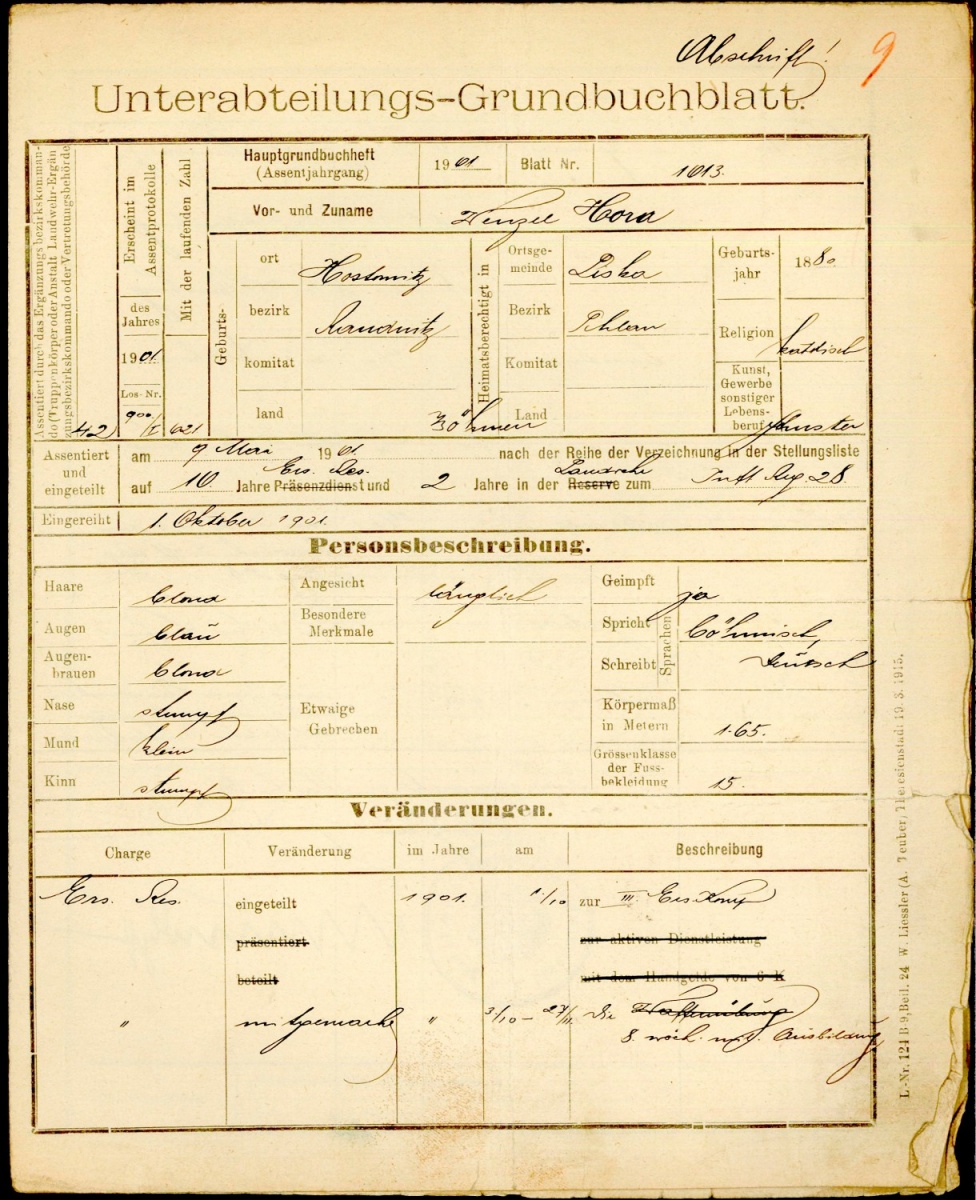 Abschrift! 9
Unterabteilungs-Grundbuchblatt.
Assentiert durch das Ergänzungsbezirkskomman-
do (Truppenkörper oder Anstalt Landwehr-Ergän
zungsbezirkskommando oder Vertretungsbehörde
42
Erscheint im
Assentprotokolle
des
Jahres
1901
Los-Nr.
900/I
Mit der laufenden Zahl
621
Hauptgrundbuchheft
(Assentjahrgang)
1901
Blatt Nr.
1013.
Vor- und Zuname
Wenzel Hora
Geburts-
ort
Hostomitz
bezirk
Raudnitz
komitat
land
Böhmen
Heimatsberechtigt in
Ortsge-
meinde
Liska
Bezirk
Schlan
Komitat
Land
Geburts-
jahr
1880
Religion
katolisch
Kunst,
Gewerbe
sonstiger
Lebens-
beruf
Schuster
Assentiert
und
eingeteilt
am 9 Mai 1901 nach der Reihe der Verzeichnung in der Stellungsliste
Ers. Res. Landwehr
auf 10 Jahre Präsenzdienst und 2 Jahre in der Reserve zum Inft Reg. 28
Eingereiht 1. Oktober 1901.
Personsbeschreibung.
Haare blond
Augen blau
Augen-
brauen blond
Nase stumpf
Mund klein
Kinn stumpf
Angesicht länglich
Besondere
Merkmale
Etwaige
Gebrechen
Geimpft ja
Spricht
Schreibt
Sprachen
böhmisch,
deutsch
Körpermaß
in Metern 1·65.
Grössenklasse
der Fuss-
bekleidung 15.
Veränderungen.
Charge Veränderung im Jahre am Beschreibung
Ers. Res. eingeteilt 1901. 1/10 zur III. Ers. Komp
präsentiert zur aktiven Dienstleistung
beteilt mit dem Handgelde von 6 K
" mitgemacht " 3/10 - 27/11. die Waffenübung
8. wöch. Ausbildung
L.-Nr. 124 B-9, Beil. 24 W. Liessler (A. Teuber) Theresienstadt 19. 3. 1915.